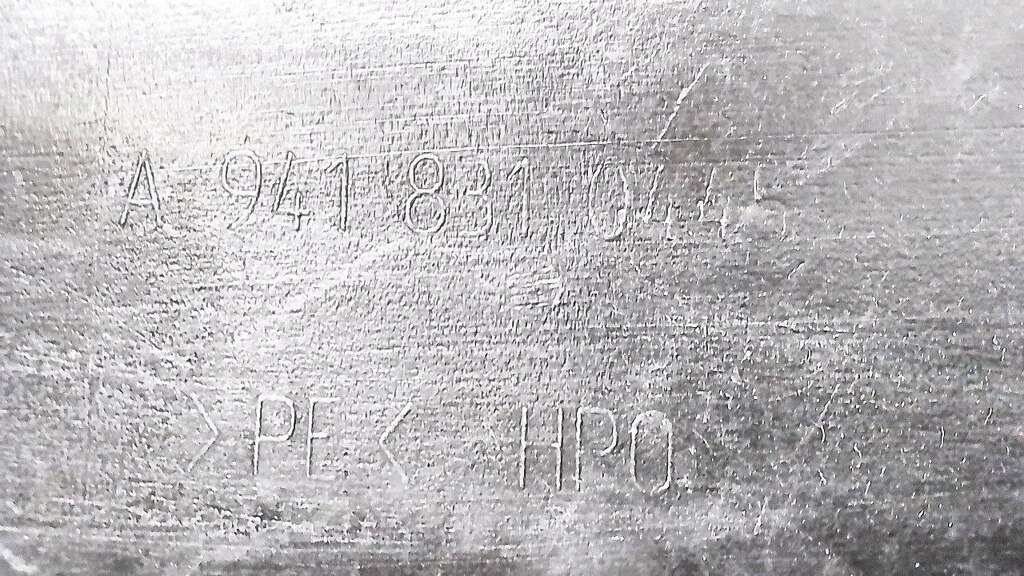 A 941 831 0445
>PE< HPO